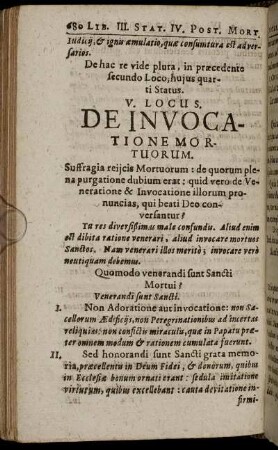 680 LIB. III. STAT. IV. POST. MORT.
Iudicij, & ignis æmulatio, quæ consumtura est adver-
sarios.
De hac re vide plura, in præcedente
secundo Loco, hujus quar-
ti Status.
V. LOCUS.
DE INVOCA-
TIONE MOR-
TUORUM.
Suffragia rejicis Mortuorum: de quorum ple-
na purgatione dubium erat; quid vero de Ve-
neratione & Invocatione illorum pro-
nuncias, qui beati Deo con-
versantur?
Tu res diversissimas male confundis. Aliud enim
est dibita ratione venerari; aliud invocare mortuos
Sanctos. Nam venerari illos meritò; invocare verò
neutiquam debemus.
Quomodo venerandi sunt Sancti
Mortui?
Venerandi sunt Sancti.
I. Non Adoratione aut invocatione: non Sa-
cellorum Ædificijs, non Peregrinationibus ad incertas
reliquias: non confictis miraculis, quæ in Papatu præ-
ter omnem modum & rationem cumulata fuerunt.
II. Sed honorandi sunt Sancti grata memo-
ria, præcellentu in Deum Fidei, & donorum, quibus
in Ecclesiæ bonum ornati erant: sedula imitatione
virtutum, quibus excellebant: cauta devitatione in-
firmi-